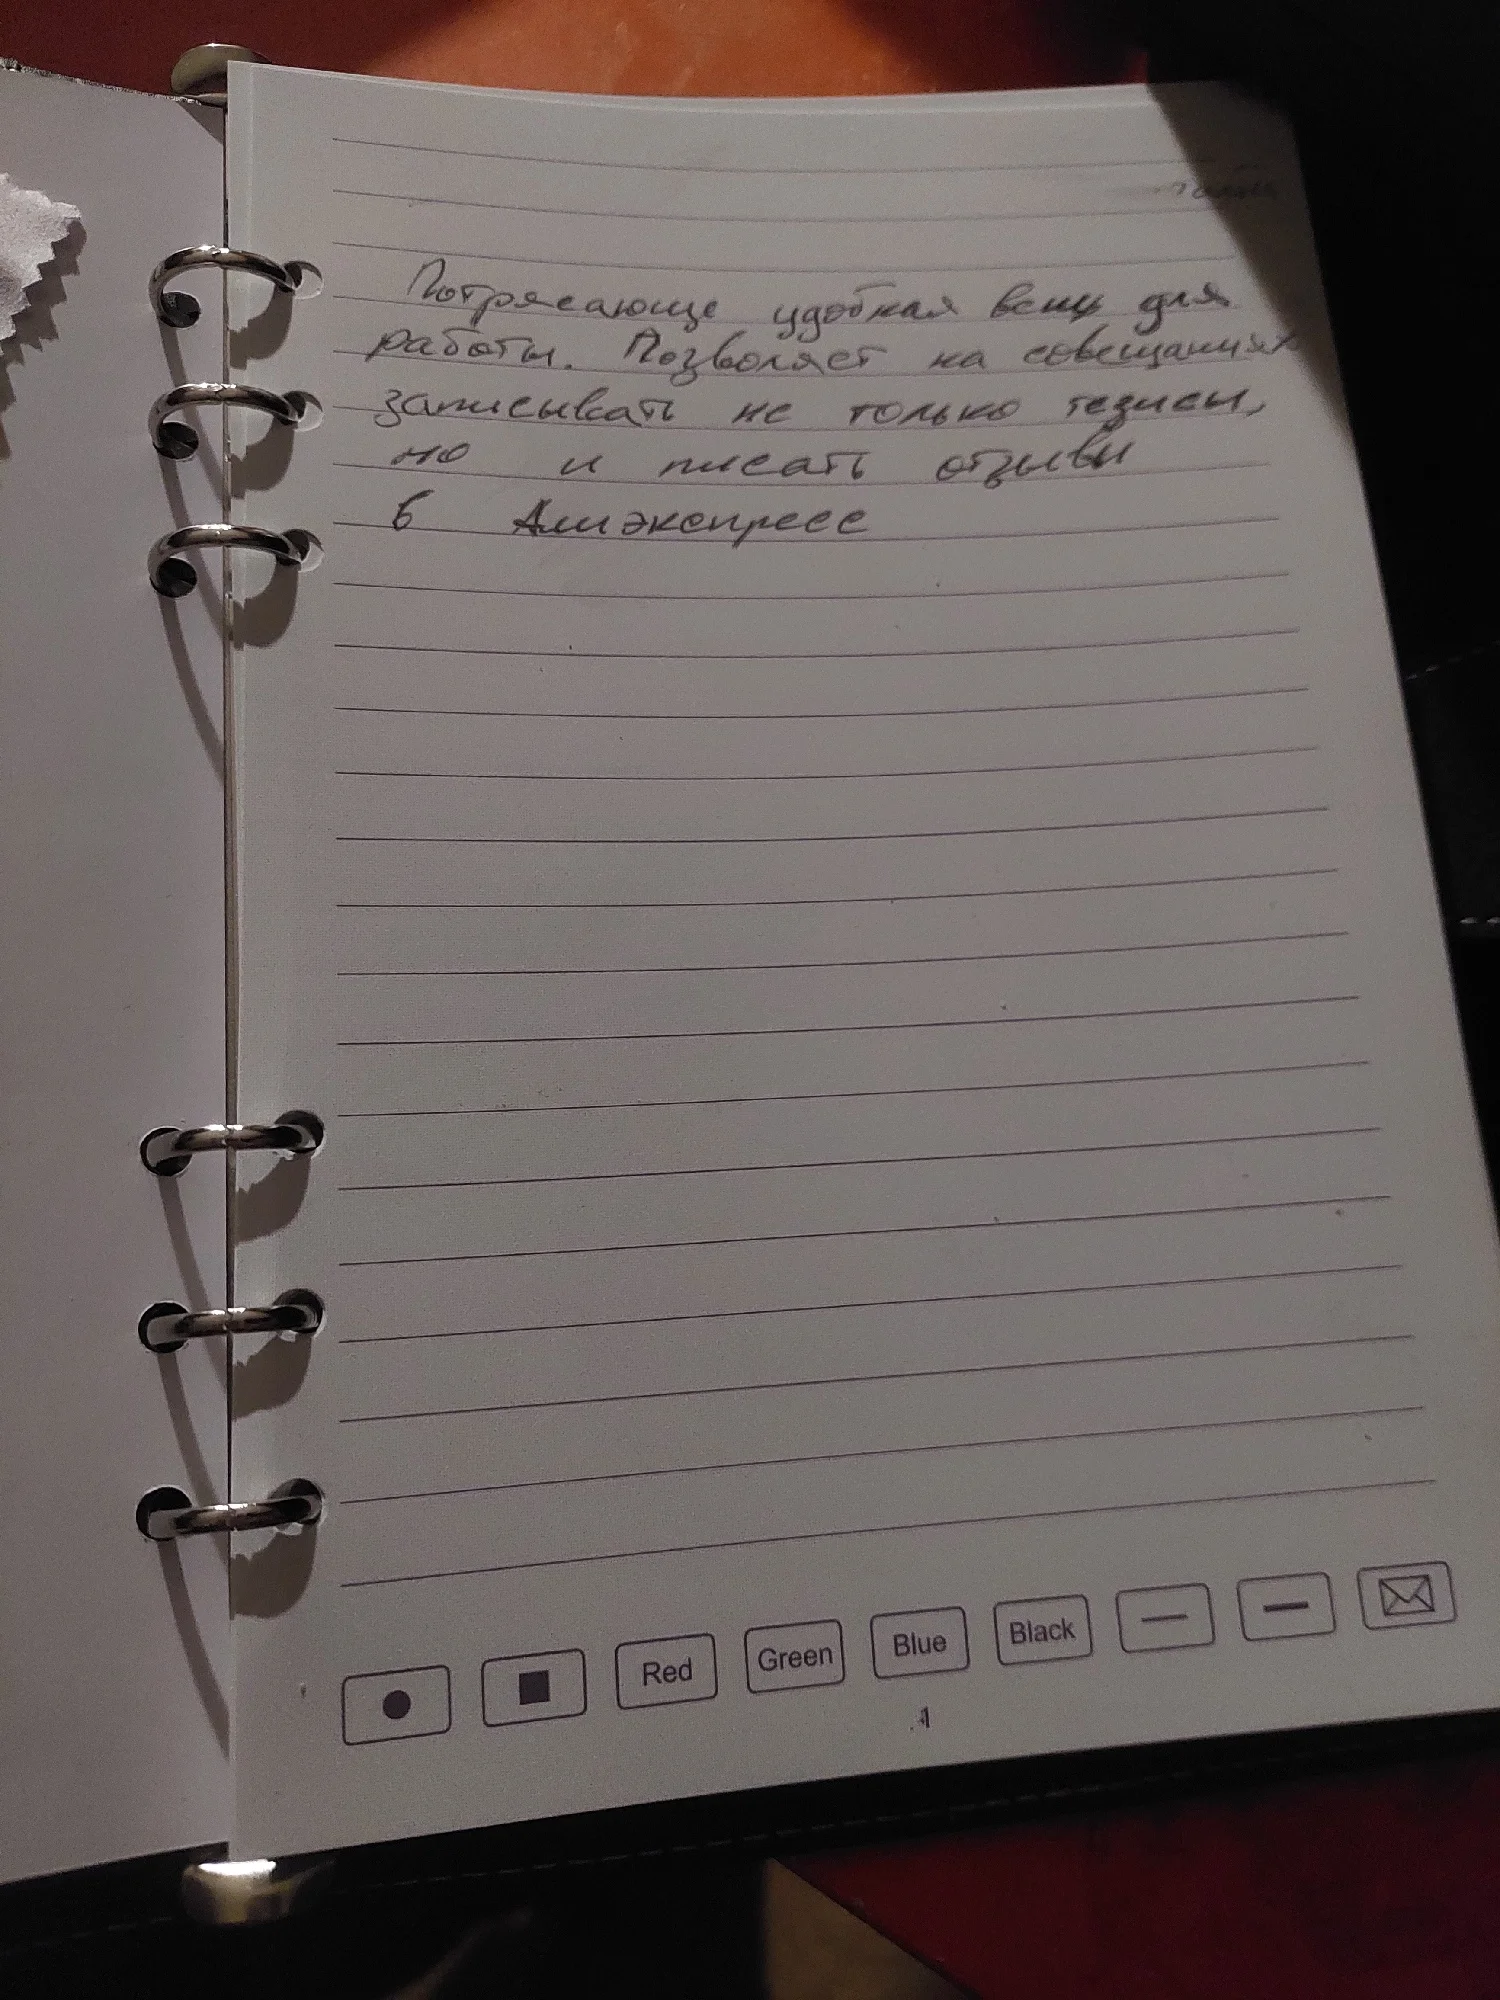 Потрясающе удобная вещь для
работы. Позволяет на совещаниях
записывать не только тезисы,
но и писать отзывы
в Алиэкспресс
Red Green Blue Black
1